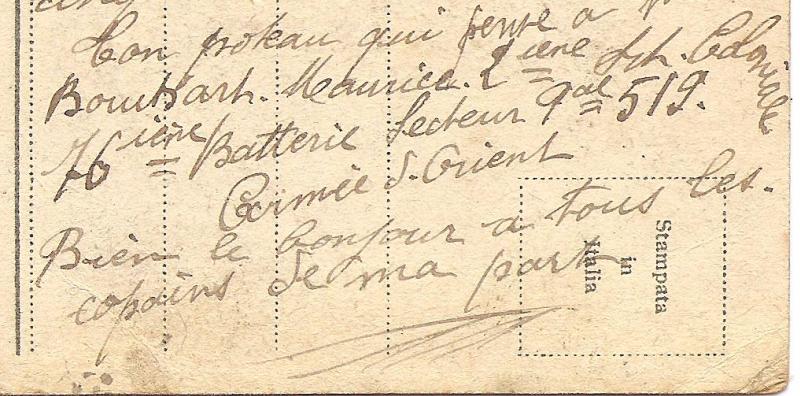 cinq
Ton poteau qui pense a
Maurice. 2ième Coloniale
76ième Batterie Secteur 519.
Armée d. Orient
Bien le bonjour a tous les.
copains de ma part
Stampata
in
Italia